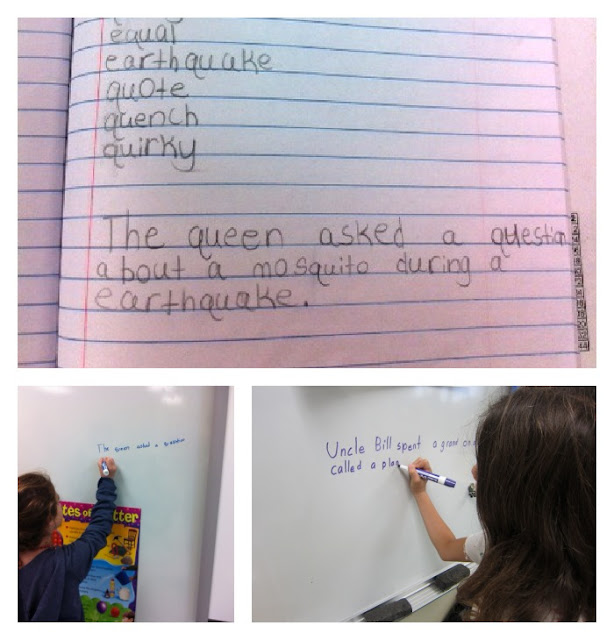 equal
earthquake
quote
quench
quirky
The queen asked a question
about a mosquito during a
earthquake.
The queen asked a question
tes of tter
Uncle Bill spent a
called a